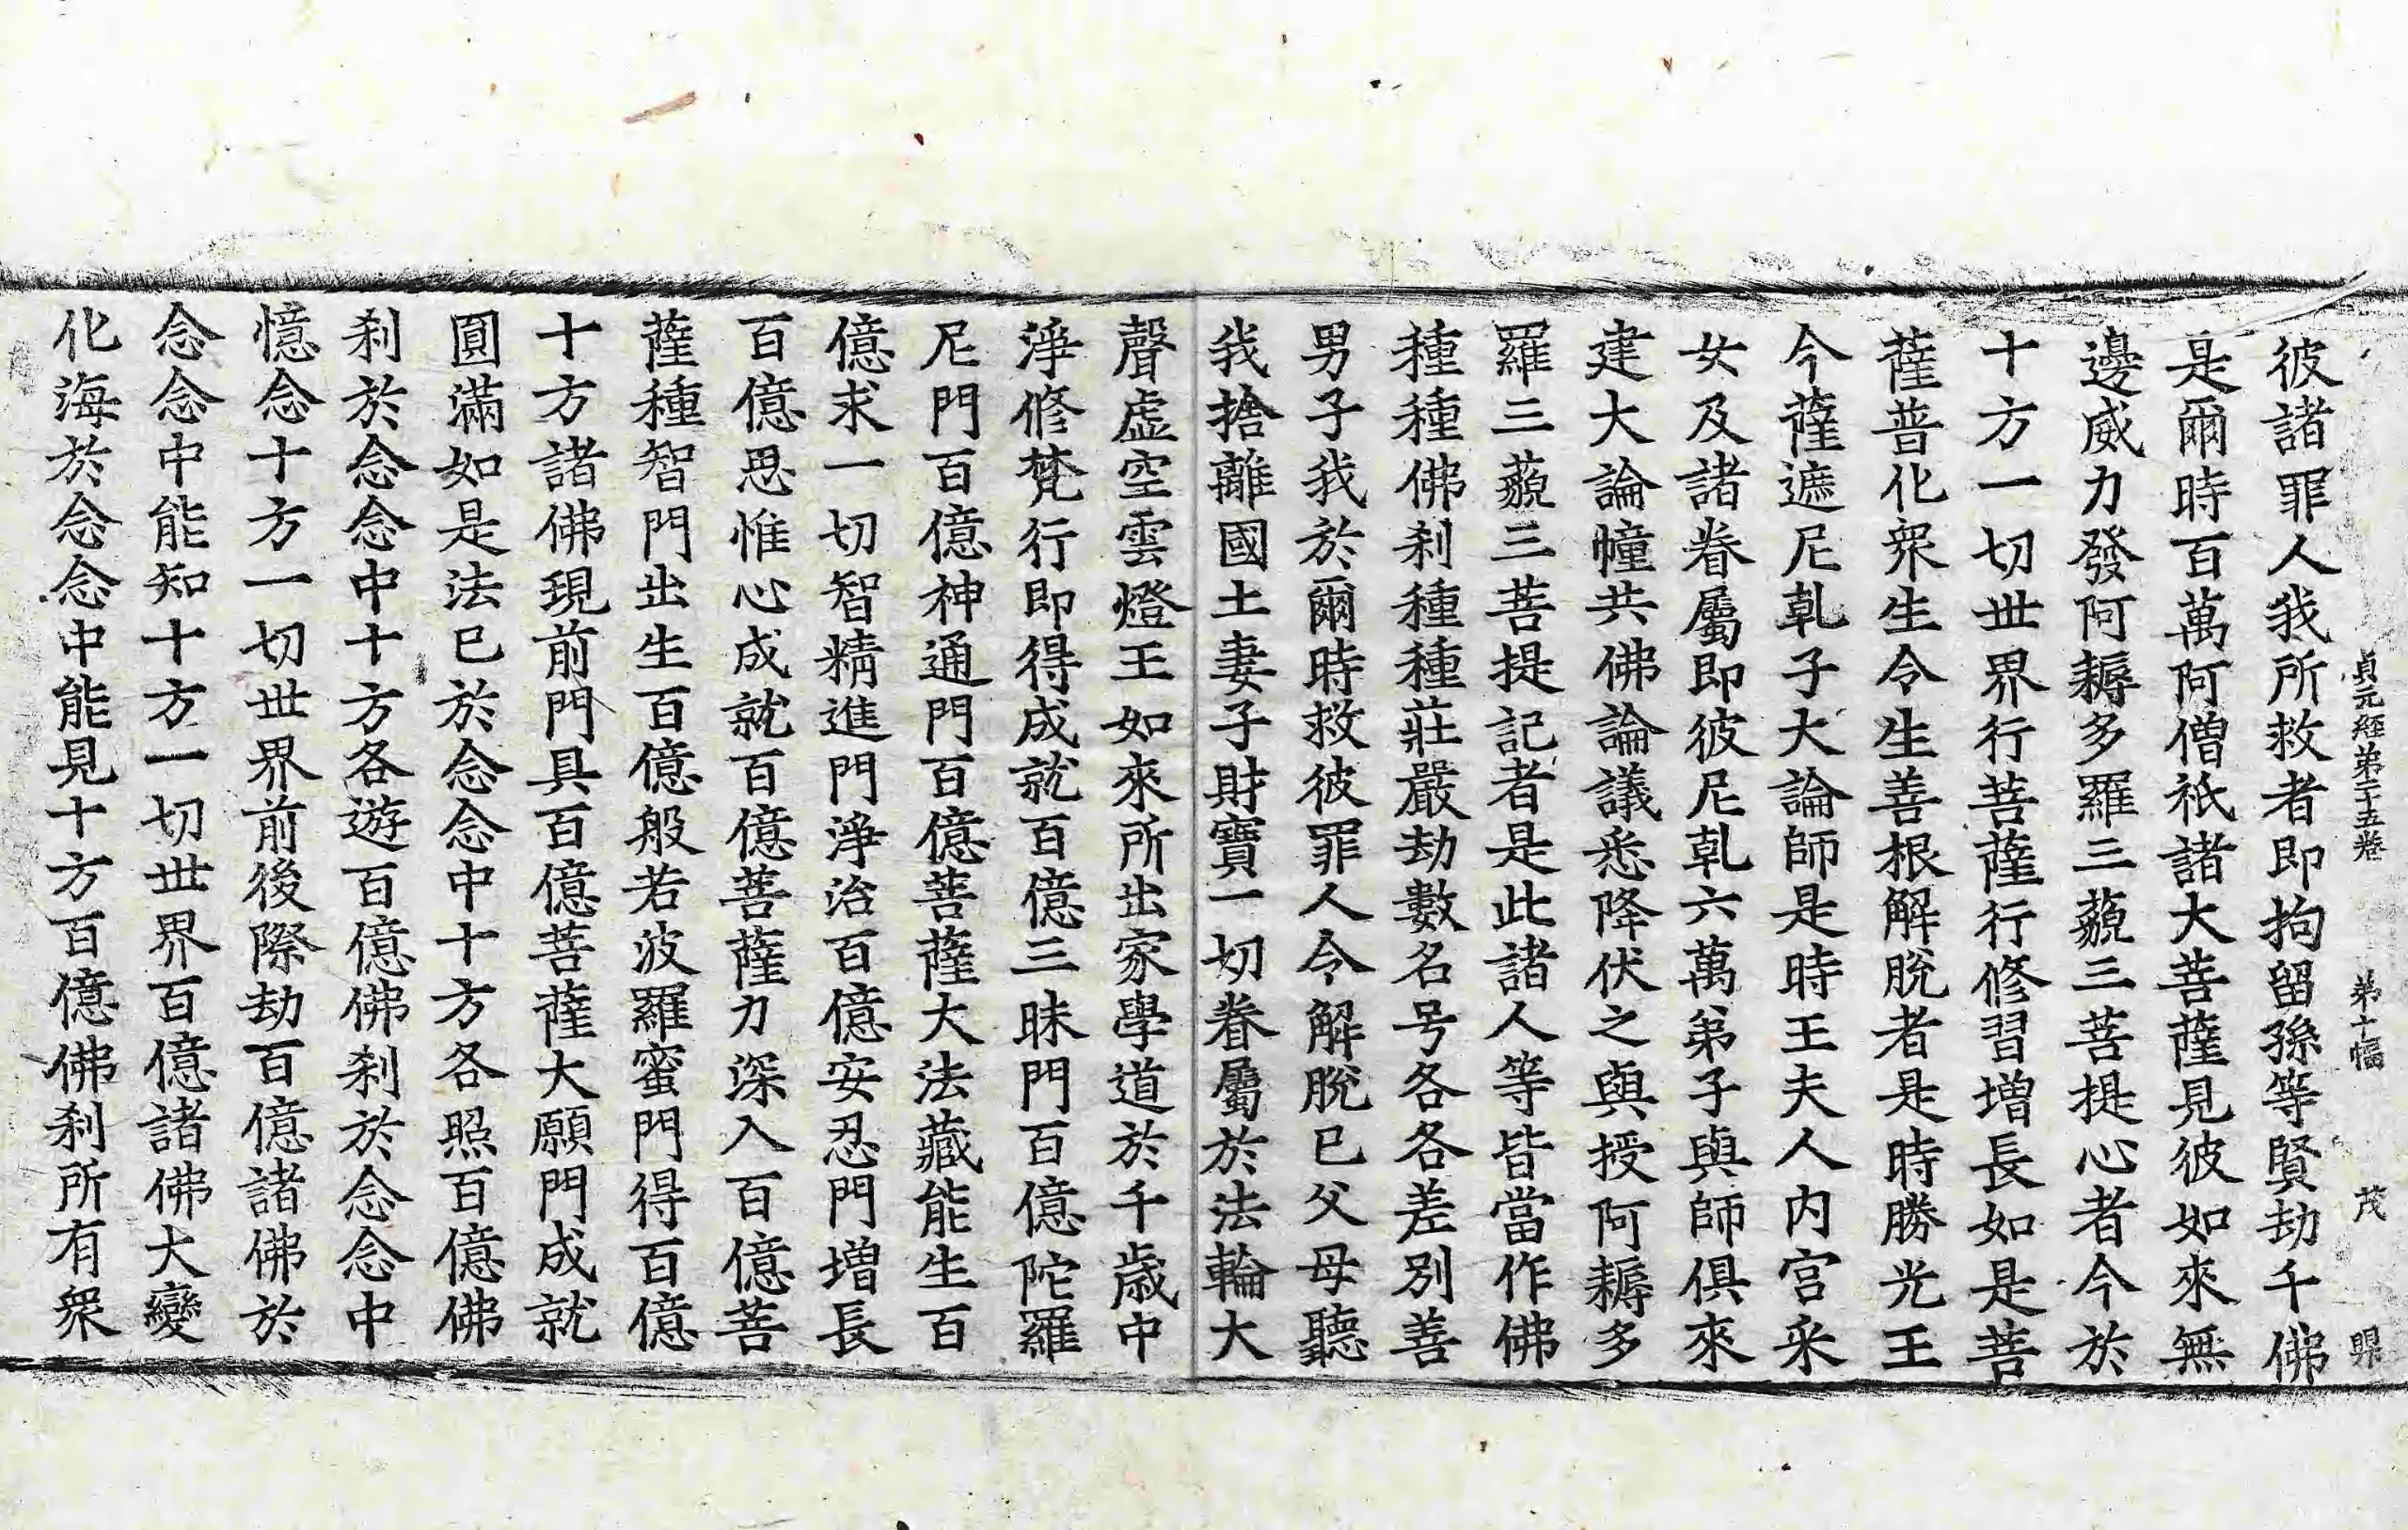 貞元經第二十五卷 第十幅 茂
彼諸罪人我所救者即拘留孫等賢劫千佛
是爾時百萬阿僧祇諸大菩薩見彼如來無
邊威力發阿耨多羅三藐三菩提心者今於
十方一切世界行菩薩行修習增長如是菩
薩普化衆生令生善根解脫者是時勝光王
今薩遮尼乹子大論師是時王夫人内宫采
女及諸眷屬即彼尼乹六萬弟子與師俱來
建大論幢共佛論議悉降伏之與授阿耨多
羅三藐三菩提記者是此諸人等皆當作佛
種種佛刹種種莊嚴劫數名号各各差別善
男子我於爾時救彼罪人令解脫已父母聽
我捨離國土妻子財寶一切眷屬於法輪大
聲虛空雲燈王如來所出家學道於千歲中
淨修梵行即得成就百億三昧門百億陀羅
尼門百億神通門百億菩薩大法藏能生百
億求一切智精進門淨治百億安忍門增長
百億思惟心成就百億菩薩力深入百億菩
薩種智門出生百億般若波羅蜜門得百億
十方諸佛現前門具百億菩薩大願門成就
圓滿如是法已於念念中十方各照百億佛
刹於念念中十方各遊百億佛刹於念念中
憶念十方一切世界前後際劫百億諸佛於
念念中能知十方一切世界百億諸佛大變
化海於念念中能見十方百億佛刹所有衆